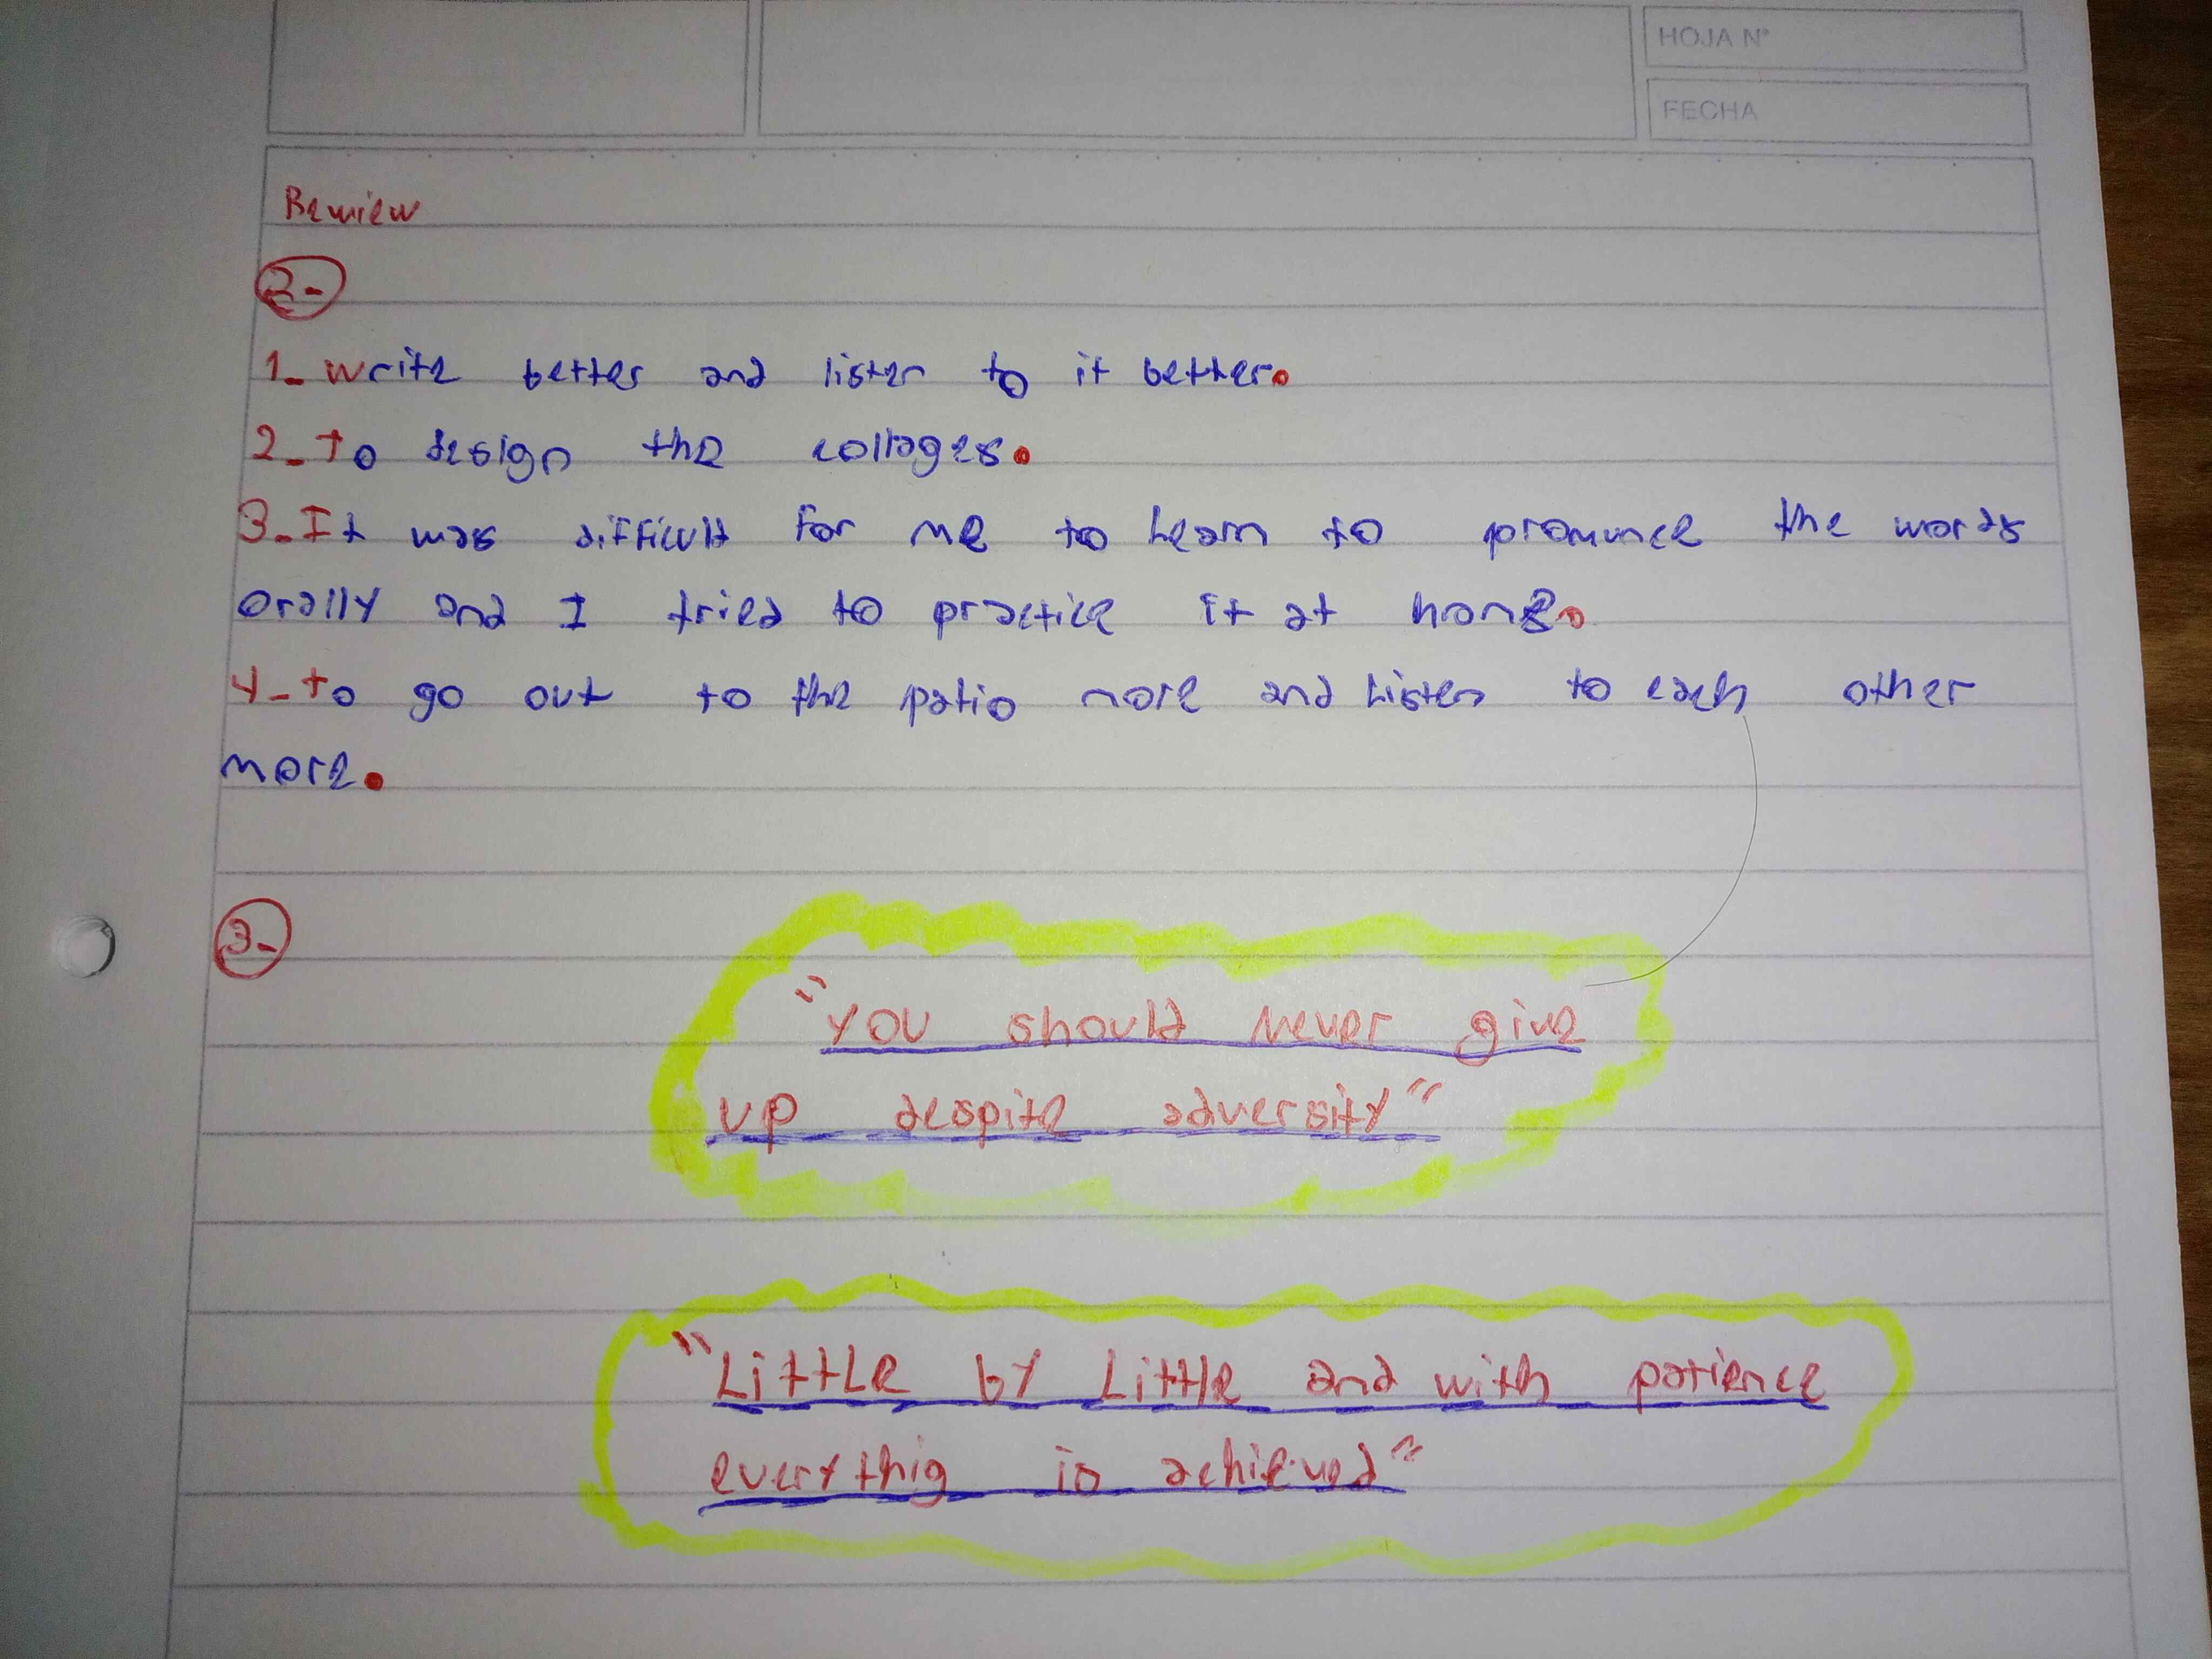 HOJA N°
FECHA
Rewiew
2-
1- write better and listen to it better.
2- To design the collages.
3- It was difficult for me to learn to pronunce the words
orally and I tried to practice it at home.
4- to go out to the patio more and listen to each other
more.
3-
"You should never give
up despite adversity"
"Little by Little and with patience
everythig is achieved"